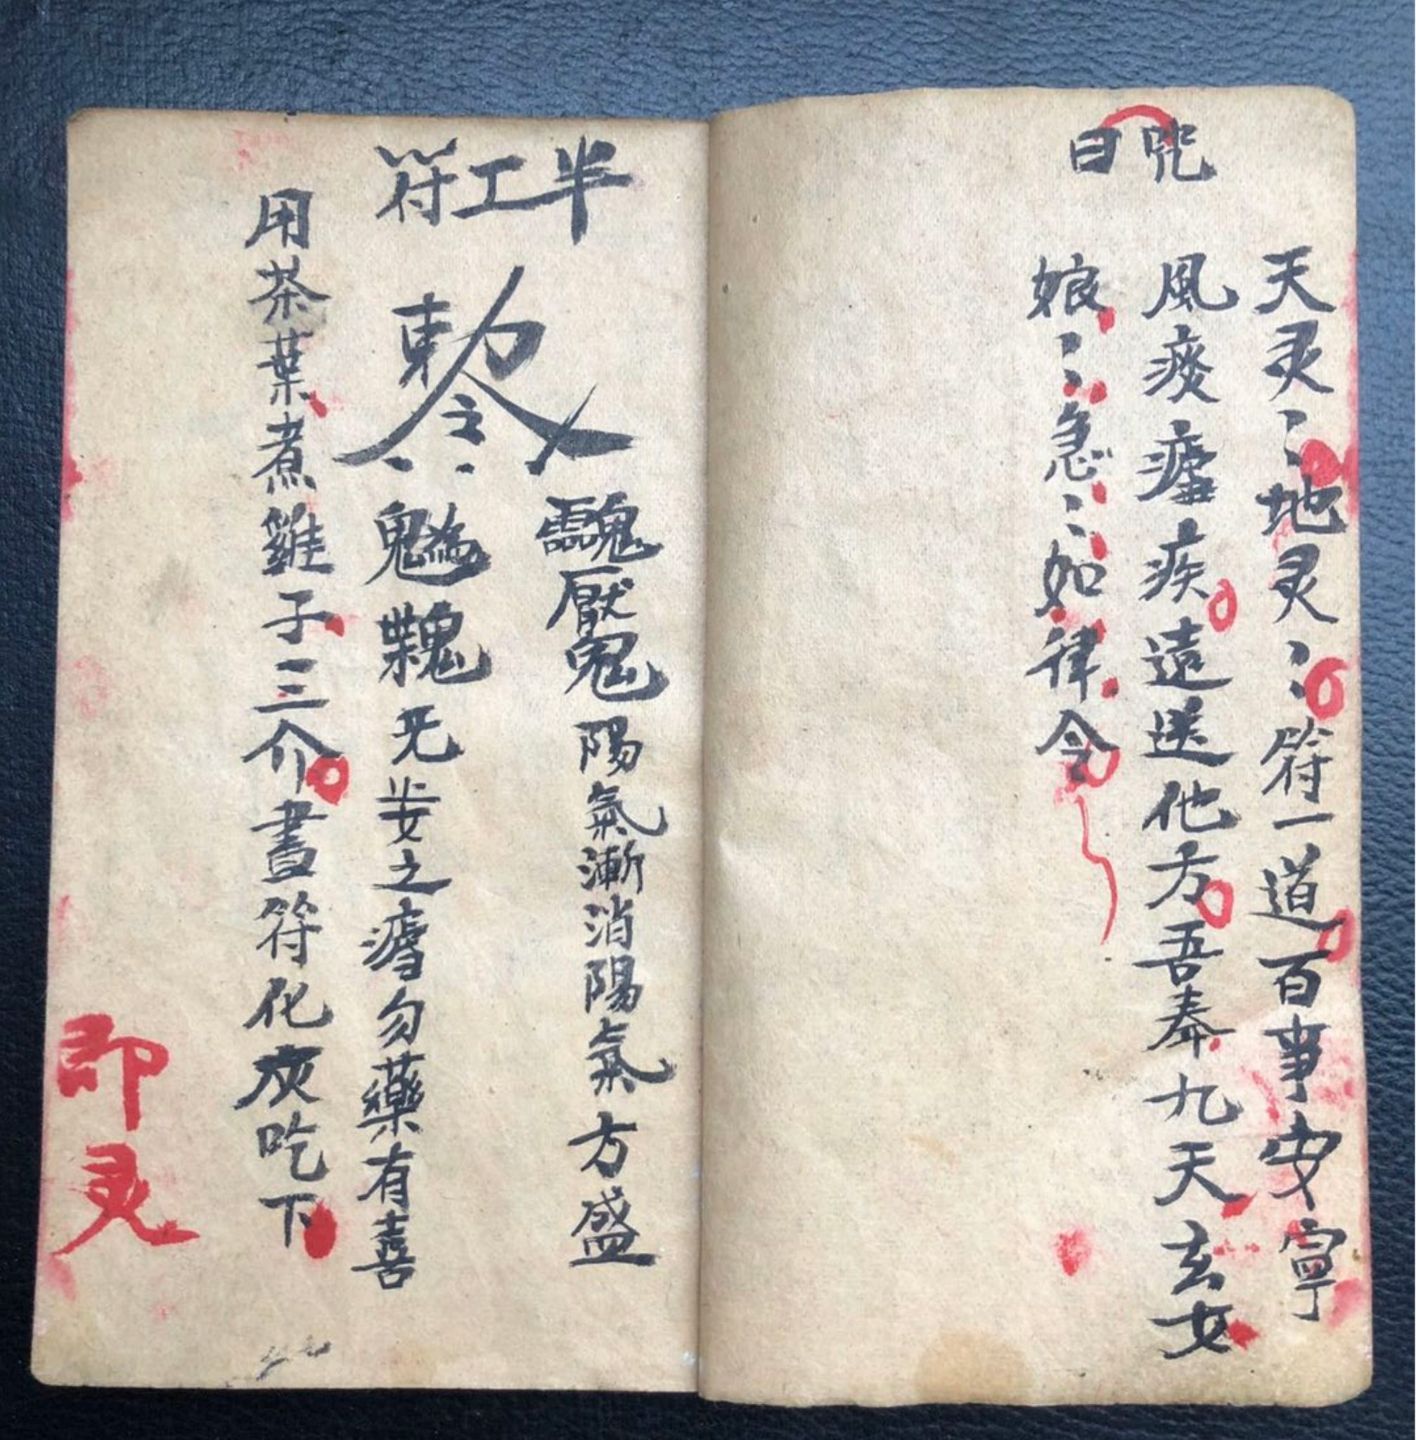 咒曰
天灵〻地灵〻符一道百事安寧
風痰瘧疾遠送他方吾奉九天玄女
娘〻急〻如律令
半工符
敕令
陽氣漸消陽氣方盛
无妄之瘧勿藥有喜
用茶葉煮雞子三介畫符化灰吃下
即灵